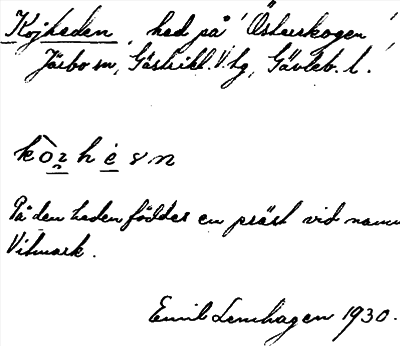 Kojheden, hed på 'Österskogen'
Järbo sn, Gästrikl. V. hg, Gävleb. l.
På den heden föddes en präst vid namn
Vilmark.
Emil Lenhagen 1930.